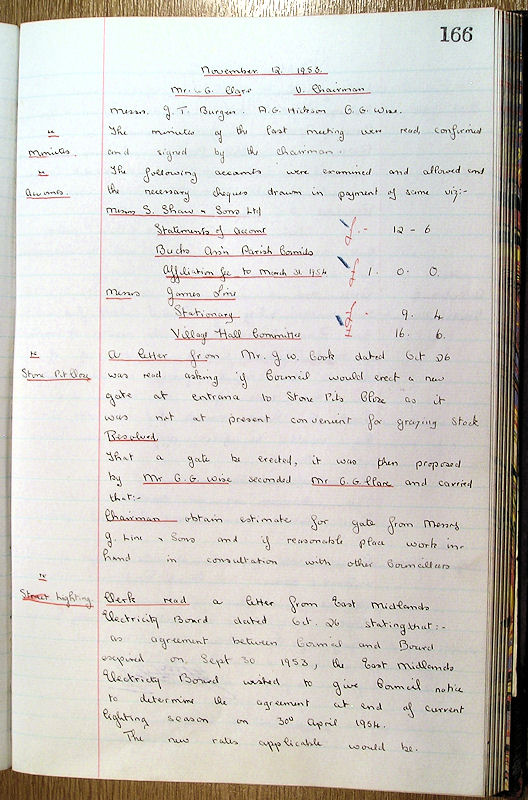 166
November 12. 1953.
Mr. G. Clare V. Chairman
Messrs. J. T. Burgess. A.G. Hickson C. G. Wise.
re The minutes of the last meeting were read, confirmed
Minutes. and signed by the chairman.
re The following accounts were examined and allowed and
Accounts. the necessary cheques drawn in payment of same viz:-
Messrs S. Shaw & Sons Ltd
Statements of Account £. - 12 - 6
Bucks Ass'n Parish Councils
Affiliation fee to March 31 1954 £ 1. 0. 0.
Messrs James Line
Stationary £ - 9. 4
Village Hall Committee 16. 6.
re A letter from Mr. J. W. Cook dated Oct 26
Stone Pit Close was read asking if Council would erect a new
gate at entrance to Stone Pits Close as it
was not at present convenient for grazing stock
Resolved
That a gate be erected, it was then proposed
by Mr C. G. Wise seconded Mr G. G. Clare and carried
that:-
Chairman obtain estimate for gate from Messrs
J. Line & Sons and if reasonable place work in-
hand in consultation with other Councillors
re
Street Lighting. Clerk read a letter from East Midlands
Electricity Board dated Oct. 26 stating that:-
as agreement between Council and Board
expired on Sept 30 1953, the East Midlands
Electricity Board wished to give Council notice
to determine the agreement at end of current
lighting season on 30th April 1954.
The new rates applicable would be.